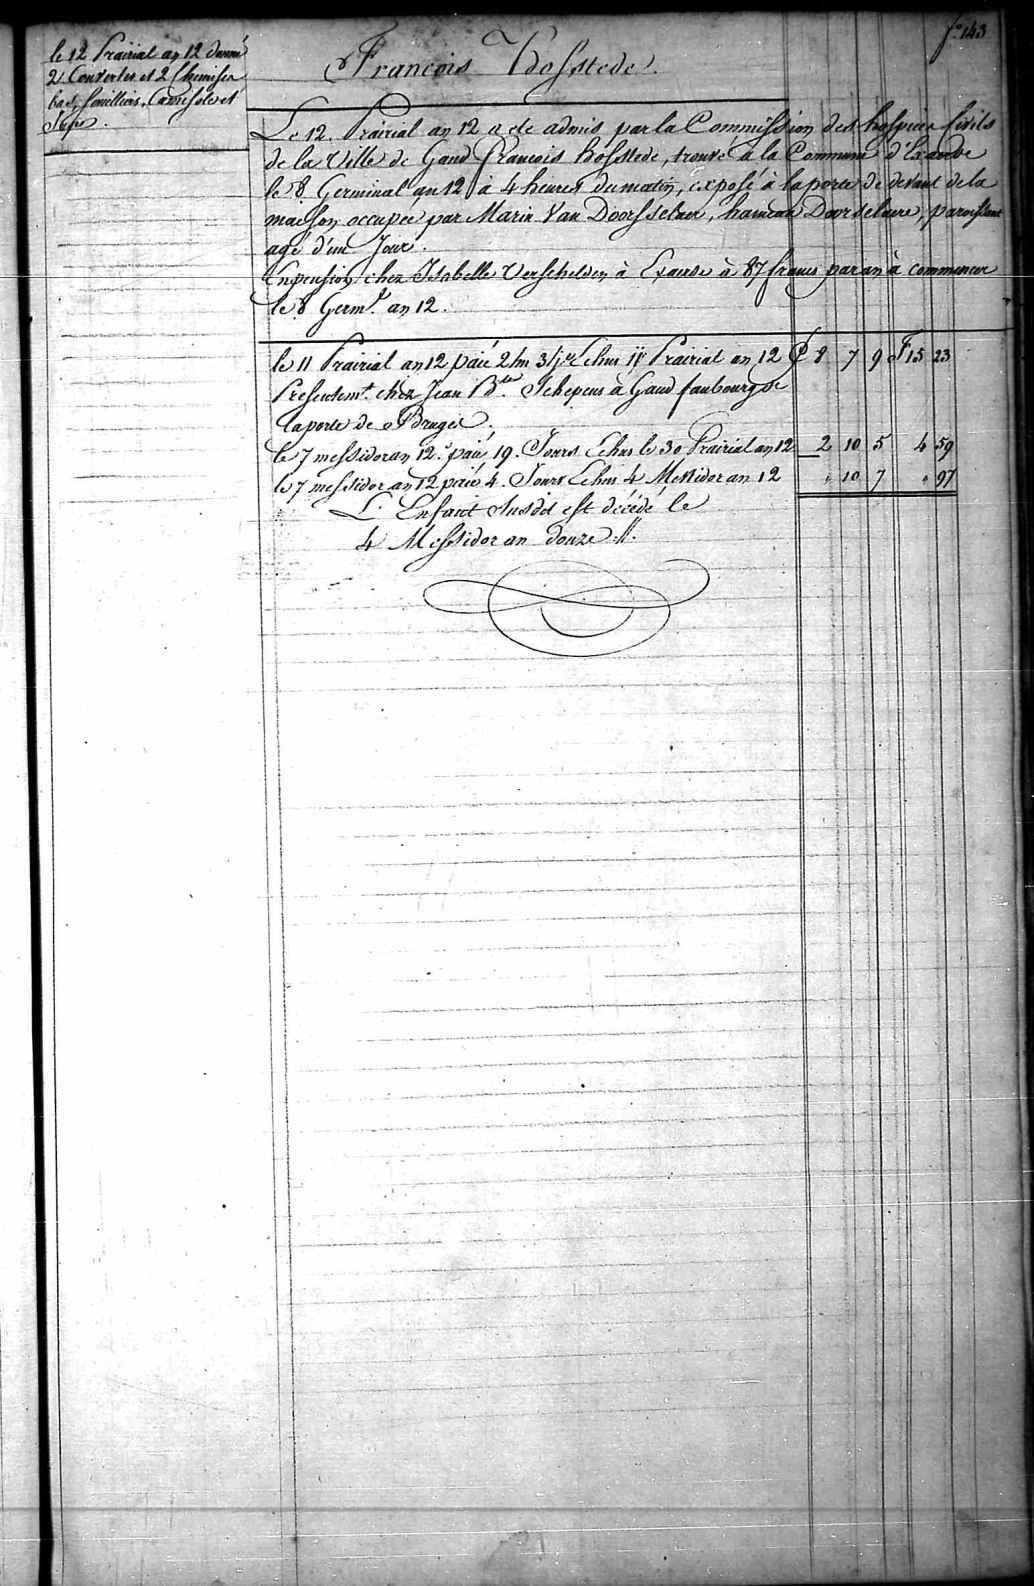 fo. 143
le 12 Prairial an 12 donné
2 Couvertes et 2 Chemises
bas, Souilliers, Camisole et
Jupe.
François Hofstede.
Le 12. Prairial an 12 a été admis par la Commission des hospices Civils
de la Ville de Gand François hofstede, trouvé à la Commune d'Exaerde
le 8 Germinal an 12 à 4 heures du matin, exposé à la porte de devant de la
maison occupée par Marin Van Doorsselaer, hameau Doorselaere, paroissant
agé d'un Jour.
En pension chez Isabelle Verschelden à Exaerde à 87 francs par an à commencer
le 8 Germl. an 12.
le 11 Prairial an 12 paié 2 m 3 jrs Echus 11 Prairial an 12 £ 8 7 9 F 15 23
Presentemt. chez Jean Bte. Schepens à Gand faubourg de
la porte de Bruges.
le 7 messidor an 12. paié 19. Jours Echus le 30 Prairial an 12 2 10 5 4 59
le 7 messidor an 12 paié 4. Jours Echus 4 Messidor an 12 " 10 7 " 97
L'Enfant susdit est décédé le
4 Messidor an douze.